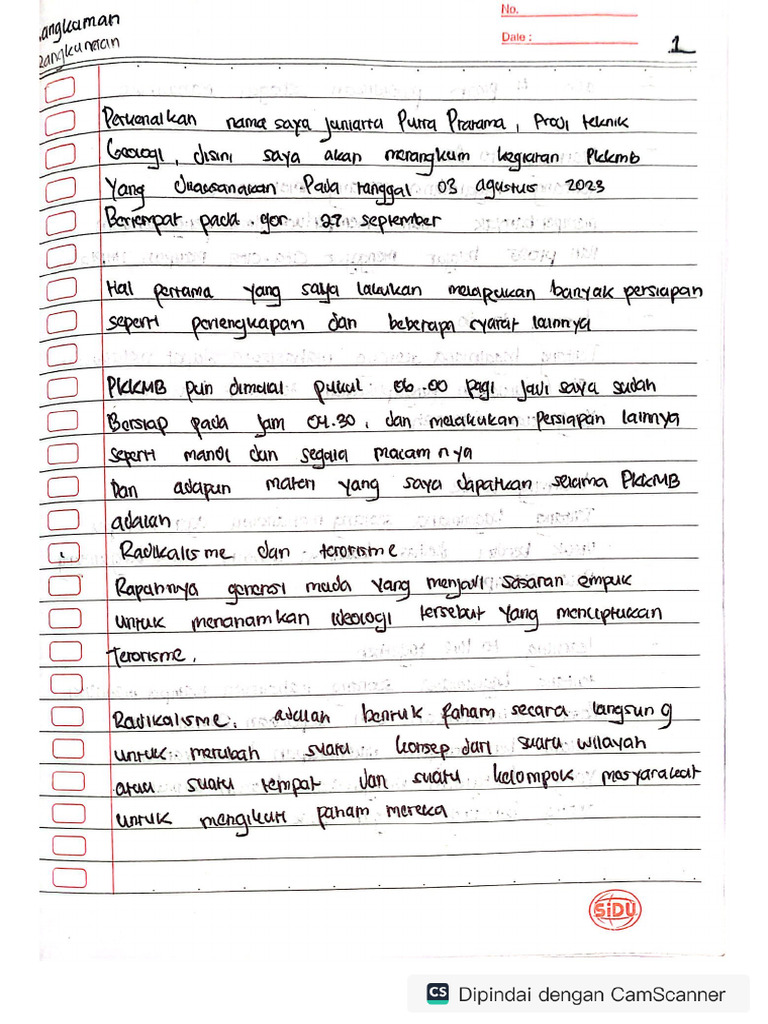 angkuman
rangkuman
No.
Date :
1
Perkenalkan nama saya Juniarta Putra Pratama, Prodi teknik
Geologi, disini saya akan merangkum kegiatan Pkkmb
Yang dilaksanakan Pada tanggal 03 agustus 2023
Bertempat pada gor 27 september
Hal pertama yang saya lakukan melakukan banyak persiapan
seperti perlengkapan dan beberapa syarat lainnya
PKKMB pun dimulai pukul 06.00 pagi Jadi saya sudah
Bersiap pada Jam 04.30, dan melakukan Persiapan lainnya
seperti mandi dan segala macam nya
Dan adapun materi yang saya dapatkan selama PKKMB
adalah
Radikalisme dan terorisme
Rapahnya generasi muda yang menjadi sasaran empuk
untuk menanamkan ideologi tersebut yang menciptakan
Terorisme.
Radikalisme. adalah bentuk faham secara langsung
untuk merubah suatu konsep dari suatu wilayah
atau suatu tempat dan suatu kelompok masyarakat
untuk mengikuti faham mereka
SiDU
CS Dipindai dengan CamScanner